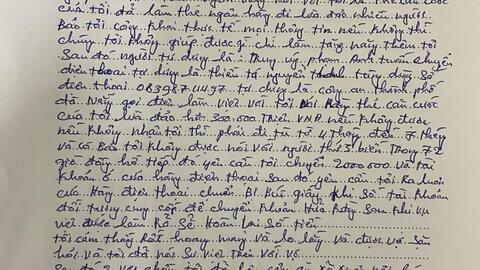 của tôi đã làm thẻ ngân hàng đi lừa đảo nhiều người.
Bảo tôi công khai thực tế mọi thông tin nếu không thì
chúng tôi không giúp được gì chỉ làm tăng nặng thêm tội
Sau đó người tự dưng là Trung úy phạm Anh tuấn chuyển
điện thoại tự dưng là thiếu tá nguyễn Thành Tùng dùng số
điện thoại 083987 tự dưng là công an thành phố
đà Nẵng gọi đến làm việc với tôi nói Rằng thẻ căn cước
của tôi lừa đảo hơn 300.000 Triệu VNĐ nếu không được
nếu không nhận tội thì phải đi tù từ 4 tháng đến 7 tháng
và có Bảo tôi không được nói với người thứ 3 biến Trong 72
giờ đồng hồ tiếp đó yêu cầu tôi chuyển 2000000 và tài
khoản ở cửa hàng điện thoại sau đó yêu cầu tôi Ra luôn
cửa Hàng điện thoại chuẩn Bị Bút giấy ghi số Tài khoản
đối tượng cung cấp để chuyển khoản Hứa Rằng Sau khi vụ
việc được làm Rõ Sẽ Hoàn Lại Số tiền
tôi cảm thấy Rất hoang mang và lo lắng và được
hỏi và tôi đã nói Sự việc trên với vợ